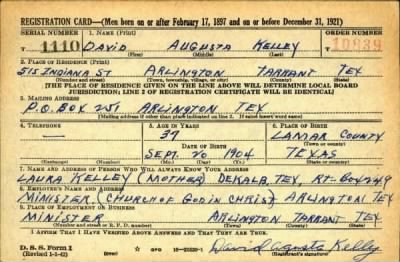 REGISTRATION CARD—(Men born on or after February 17, 1897 and on or before December 31, 1921)
SERIAL NUMBER 1. NAME (Print) ORDER NUMBER
1110 DAVID AUGUSTA KELLEY 10939
(First) (Middle) (Last)
2. PLACE OF RESIDENCE (Print)
515 INDIANA ST ARLINGTON TARRANT TEX
(Number and street) (Town, township, village, or city) (County) (State)
[THE PLACE OF RESIDENCE GIVEN ON THE LINE ABOVE WILL DETERMINE LOCAL BOARD
JURISDICTION; LINE 2 OF REGISTRATION CERTIFICATE WILL BE IDENTICAL]
3. MAILING ADDRESS
P.O. BOX 251 ARLINGTON TEX
[Mailing address if other than place indicated on line 2. If same insert word same]
4. TELEPHONE 5. AGE IN YEARS 6. PLACE OF BIRTH
— 37 LAMAR COUNTY
DATE OF BIRTH (Town or county)
SEPT. 20 1904 TEXAS
(Exchange) (Number) (Mo.) (Day) (Yr.) (State or country)
7. NAME AND ADDRESS OF PERSON WHO WILL ALWAYS KNOW YOUR ADDRESS
LAURA KELLEY (MOTHER) DEKALB, TEX, RT- BOX 249
8. EMPLOYER'S NAME AND ADDRESS
MINISTER (CHURCH OF GOD IN CHRIST) ARLINGTON TEX
9. PLACE OF EMPLOYMENT OR BUSINESS
MINISTER ARLINGTON TARRANT TEX
(Number and street or R. F. D. number) (Town) (County) (State)
I AFFIRM THAT I HAVE VERIFIED ABOVE ANSWERS AND THAT THEY ARE TRUE.
D. S. S. Form 1
(Revised 1-1-42) GPO 16-21630-1 David Agusta Kelley
(Registrant's signature)